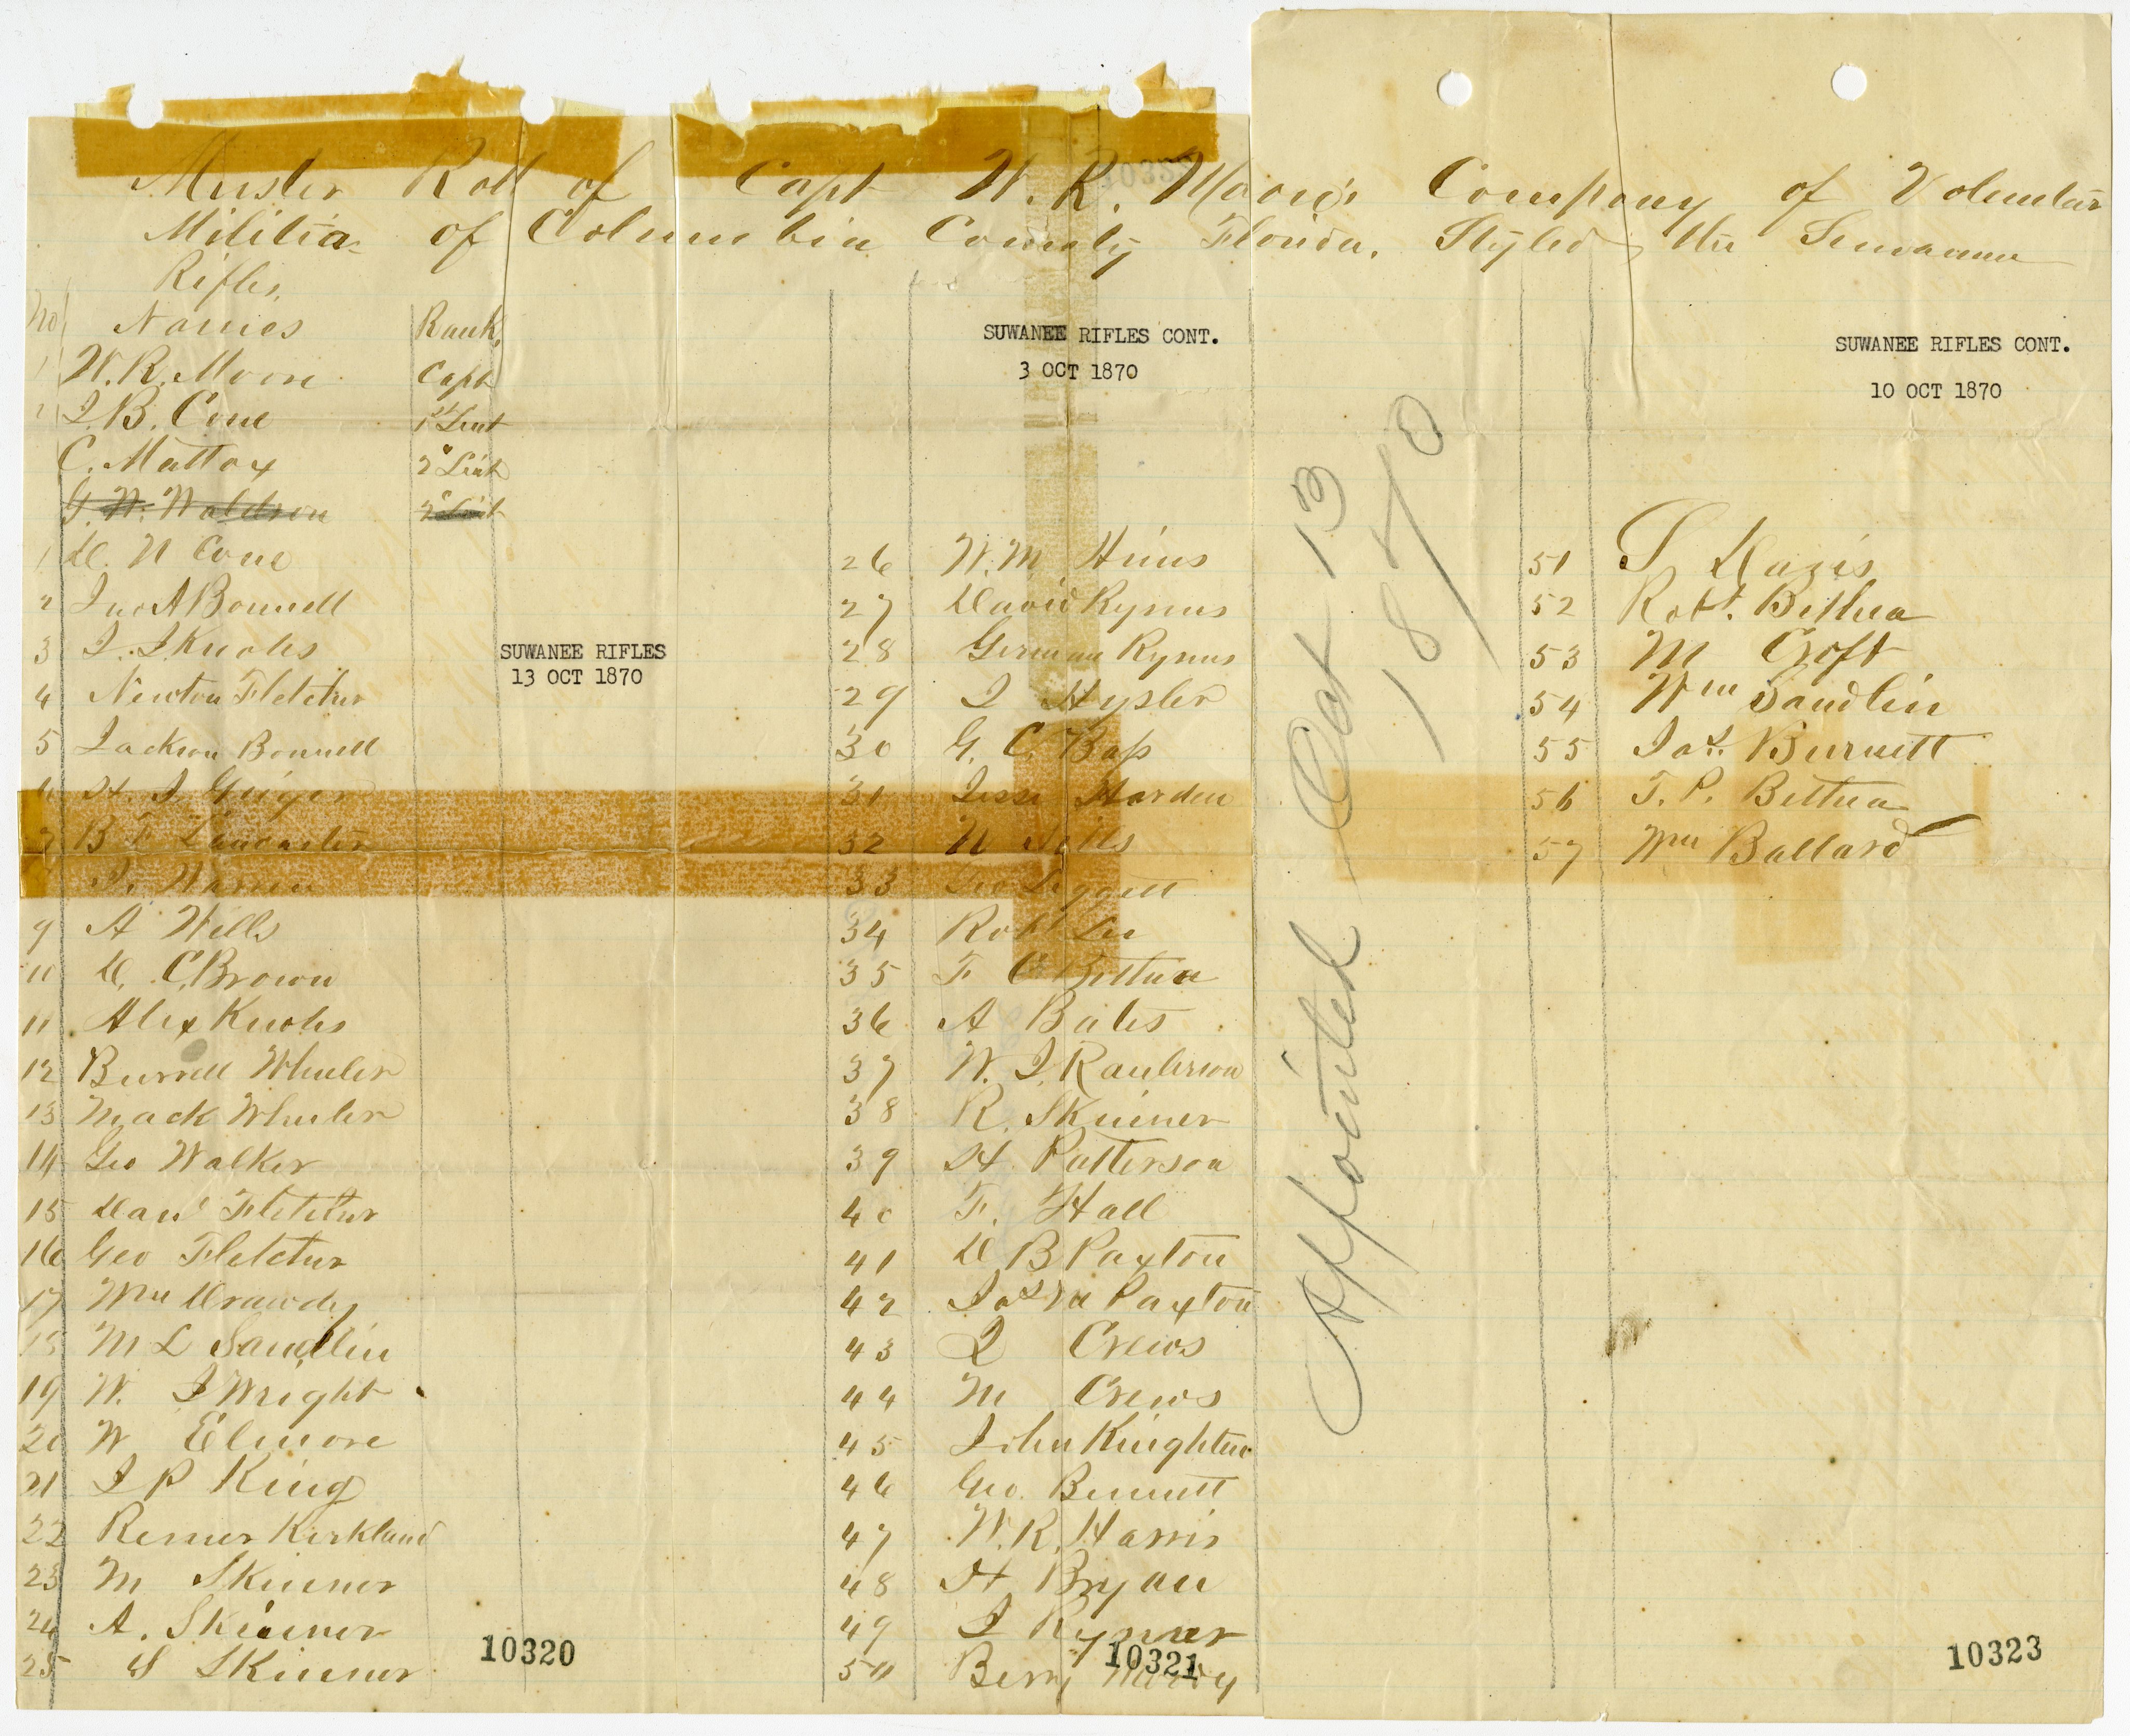 Muster Roll of Capt W. R. Moore's Company of Voluntar
Militia of Columbia County Florida, Styled the Suwannee
Rifles,
No Names Rank,
1 W. R. Moore Capt
2 J. B. Cone 1st Lieut
C. Mattox 2" Lieut
G. W. Waldron 2" Lieut
1 D. N Cone
2 Jno A Bonnell
3 J. J Knoles
4 Newton Fletcher
5 Jackson Bonnell
6 H. J. Geiger
7 B F Lancaster
J. Warren
9 A Wells
10 D. C. Brown
11 Alex Knoles
12 Burrell Wheeler
13 Mack Wheeler
14 Geo Walker
15 David Fletcher
16 Geo Fletcher
17 Wm Drawdy
18 M L Sandlin
19 W. J Wright
20 W Elmore
21 J P King
22 Remer Kirkland
23 M Skinner
24 A. Skinner
25 S Skinner
SUWANEE RIFLES
13 OCT 1870
10320
SUWANEE RIFLES CONT.
3 OCT 1870
26 W. M Hines
27 David Rymus
28 German Rymus
29 J Hysler
30 G. C. Bass
31 Jesse Harden
32 N
33 Geo Leggett
34 Robt Lee
35 F C Bethea
36 A Bates
37 W. J. Raulerson
38 R. Skinner
39 H. Patterson
40 F. Hall
41 D B Paxton
42 Jas M Paxton
43 J Crews
44 M Crews
45 John Knighton
46 Geo. Bennett
47 W. R. Harris
48 H Bryan
49 J Rymer
50 Berry
10321
Appointed Oct 13
1870
SUWANEE RIFLES CONT.
10 OCT 1870
51 T Davis
52 Robt. Bethea
53 M Croft
54 Wm Sandlin
55 Jas. Burnett
56 T. P. Bethea
57 Wm Ballard
10323